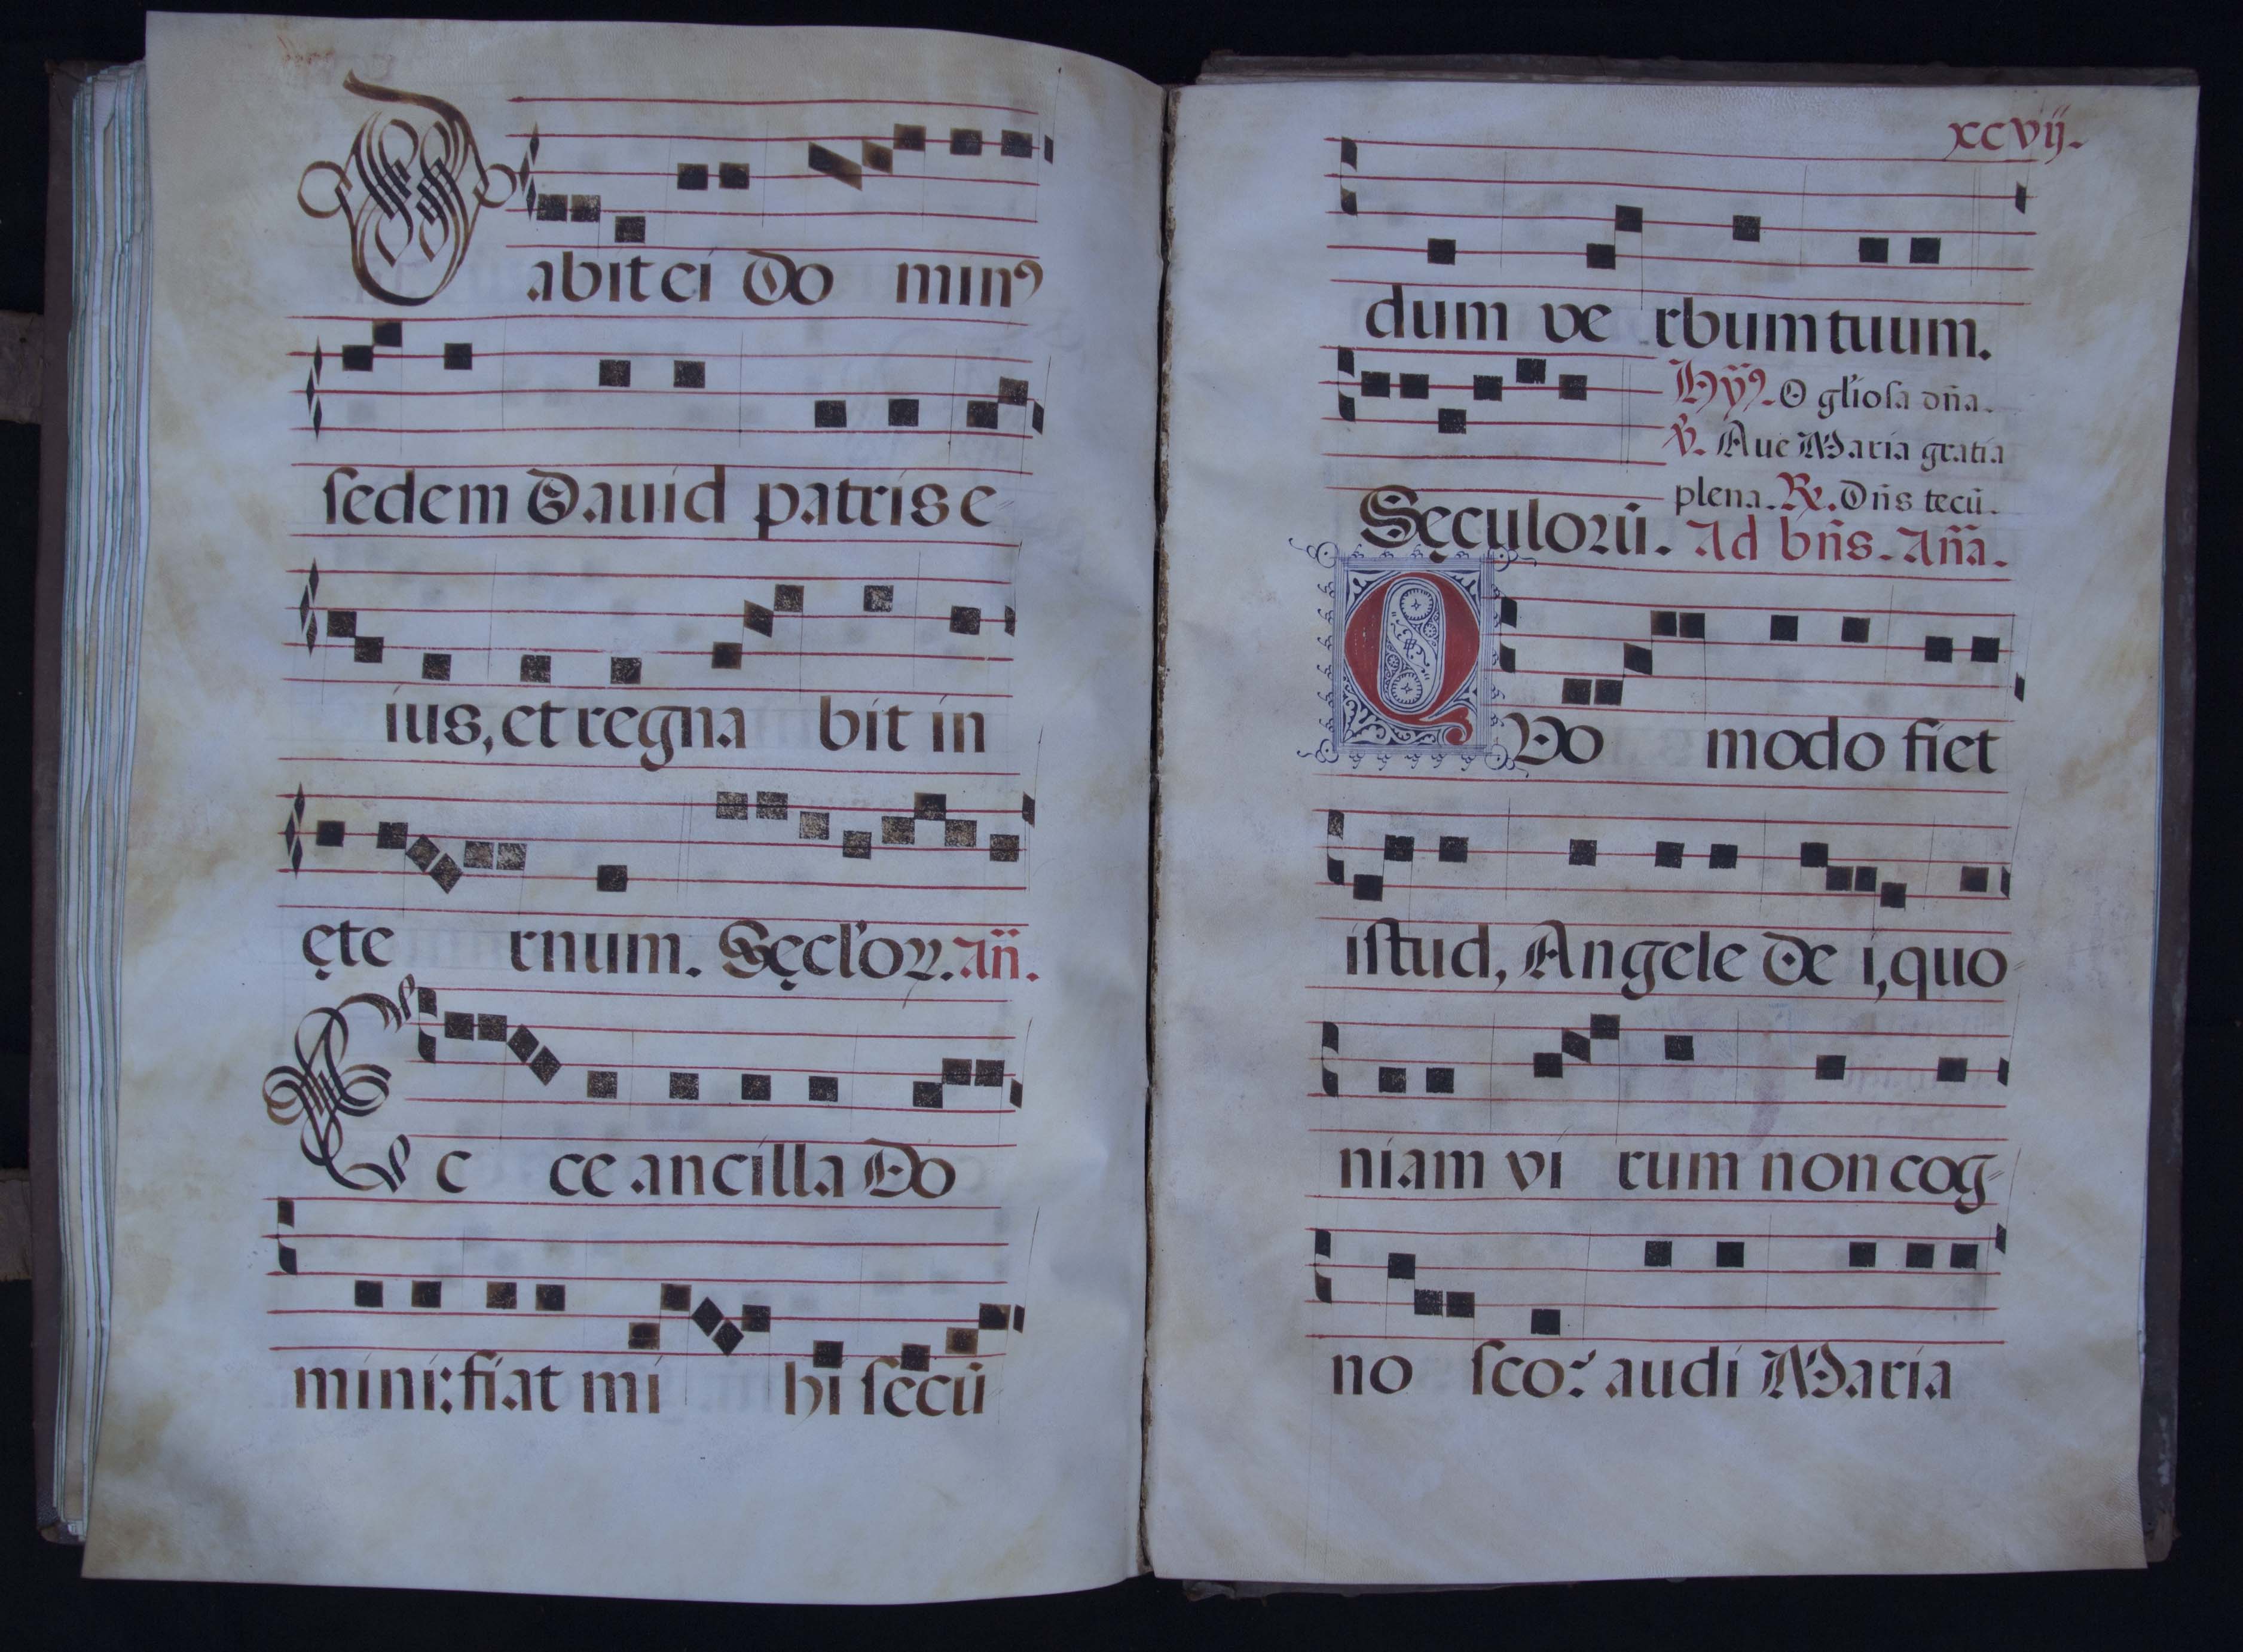 Dabit ei Do minꝰ
ſedem Dauid patris e-
ius, et regna bit in
ęte rnum. Sęcl'oꝝ. Añ.
Ec ce ancilla Do
mini: fiat mi hi ſecū
xcvij.
dum ve rbum tuum.
Hỹꝰ. O gl'ioſa dña.
℣. Aue Maria gratia
plena. ℞. Dñs tecū.
Sęculorū. Ad bñs. Aña.
QVo modo fiet
iſtud, Angele De i, quo-
niam vi rum non cog-
no ſco? audi Maria